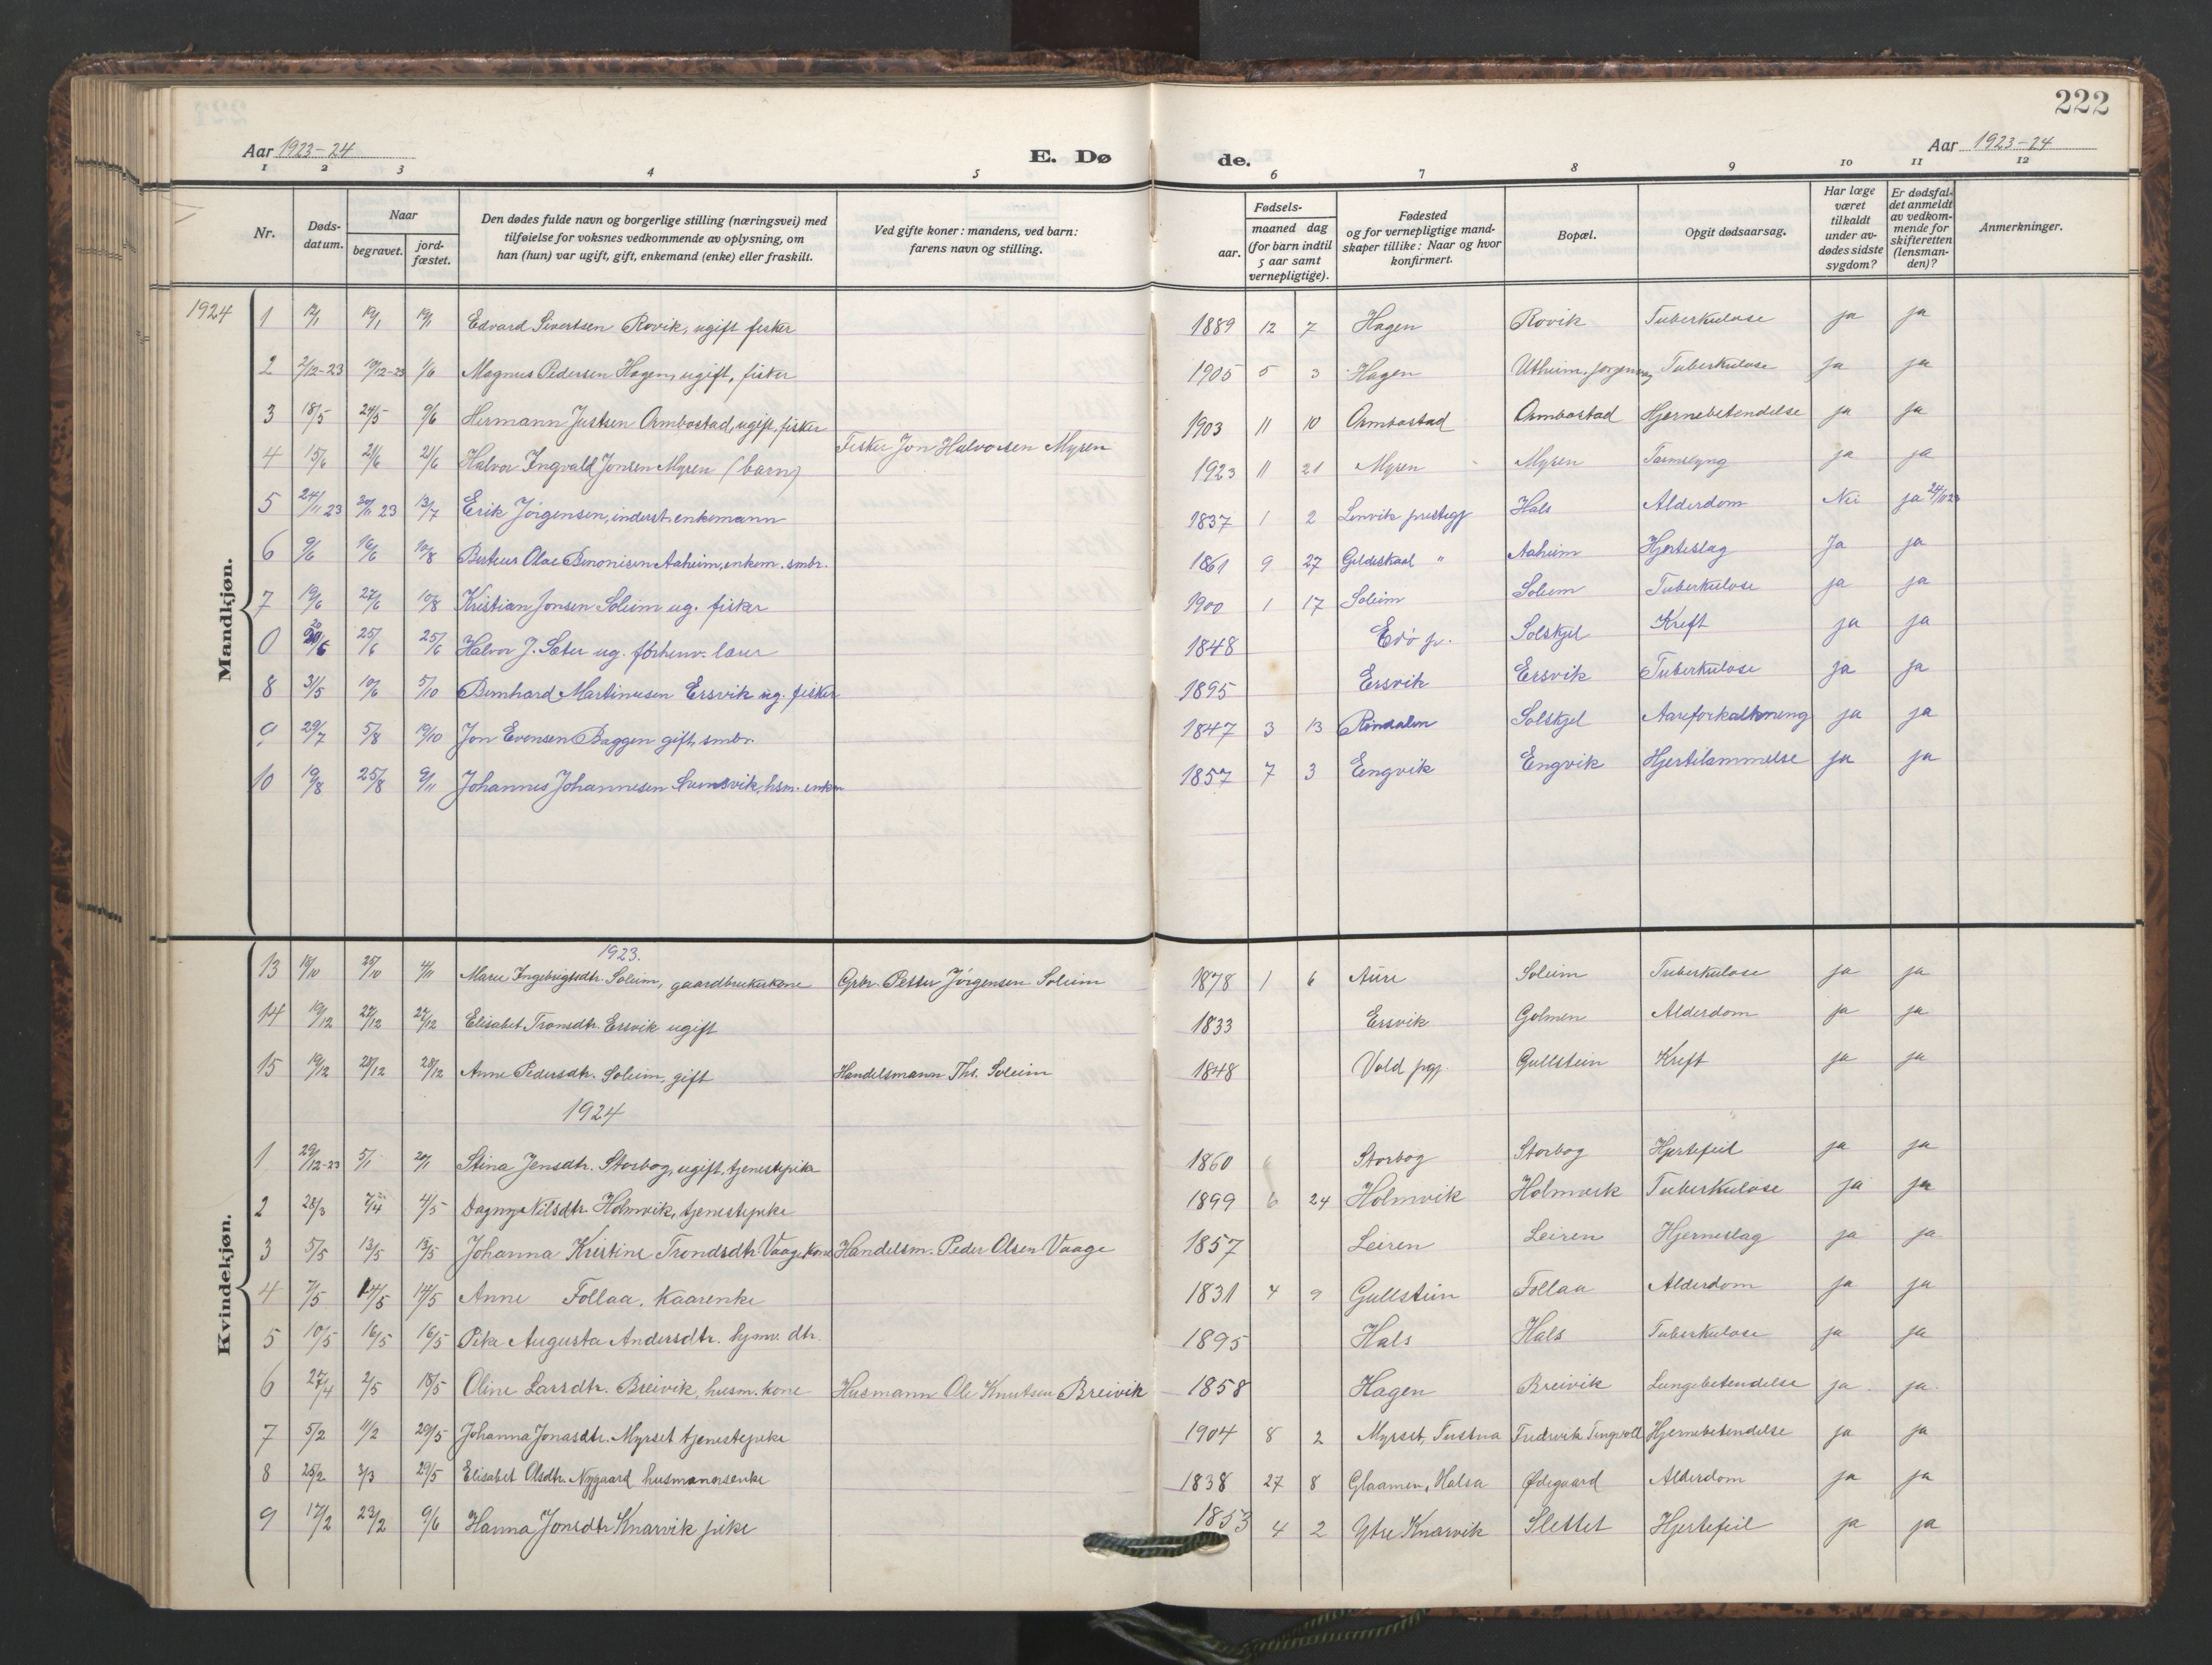 222
Aar 1923-24 E. Dø de. Aar 1923-24
1 2 3 4 5 6 7 8 9 10 11 12
Nr. Døds-datum. Naar begravet. jord-fæstet. Den dødes fulde navn og borgerlige stilling (næringsvei) med tilføielse for voksnes vedkommende av oplysning, om han (hun) var ugift, gift, enkemand (enke) eller fraskilt. Ved gifte koner: mandens, ved barn: farens navn og stilling. Fødsels- aar. maaned dag (for barn indtil 5 aar samt vernepligtige). Fødested og for vernepligtige mand-skaper tillike: Naar og hvor konfirmert. Bopæl. Opgit dødsaarsag. Har læge været tilkaldt under av-dødes sidste sygdom? Er dødsfal-det anmeldt av vedkom-mende for skifteretten (lensman-den)? Anmerkninger.
Mandkjøn.
1924 1 12/1 19/1 19/1 Edvard Sivertsen Rovik, ugift fisker 1889 12 7 Hagen Rovik Tuberkulose ja ja
2 2/12-23 19/12-23 1/6 Magnus Pedersen Hagen, ugift, fisker 1905 5 3 Hagen Utheim, Tuberkulose ja ja
3 18/5 24/5 9/6 Hermann Justsen Ormbostad, ugift, fisker 1903 11 10 Ormbostad Ormbostad Hjernebetendelse ja ja
4 15/6 21/6 21/6 Halvor Ingvald Jonsen Myren (barn) Fisker Jon Halvorsen Myren 1923 11 21 Myren Myren Tarmslyng ja ja
5 24/11 23 30/11 23 13/7 Erik Jörgensen, inderst, enkemann 1837 1 2 Lenvik prestegj Hals Alderdom Nei ja 24/11 23
6 9/6 16/6 10/8 Berteus Olae Benonisen Aaheim, enkem. smbr. 1861 9 27 Gildeskaal " Aaheim Hjerteslag Ja ja
7 19/6 27/6 10/8 Kristian Jonsen Soleim ug. fisker 1900 1 17 Soleim Soleim Tuberkulose ja ja
0 20/6 25/6 25/6 Halvor J. Sæter ug. forhenv. lærer 1848 Edö p. Solskjel Kreft ja ja
8 31/5 10/6 5/10 Bernhard Martinusen Ersvik ug. fisker 1895 Ersvik Ersvik Tuberkulose ja ja
9 29/7 5/8 19/10 Jon Evensen Baggen gift, smbr. 1847 3 13 Rindalen Solskjel Aareforkalkning ja ja
10 19/8 25/8 9/11 Johannes Johannesen Svensvik, hsm. enkem 1857 7 3 Engvik Engvik Hjertelammelse ja ja
Kvindekjøn.
1923.
13 18/10 25/10 4/11 Marie Ingebrigtsdtr. Soleim, gaardbrukerkone Grbr. Petter Jörgensen Soleim 1878 1 6 Aure Soleim Tuberkulose ja ja
14 19/12 27/12 27/12 Elisabet Tronsdtr. Ersvik ugift 1833 Ersvik Golmen Alderdom ja ja
15 19/12 28/12 28/12 Anne Pedersdtr. Soleim, gift Handelsmann Ths. Soleim 1848 Vold pgj. Gullstein Kreft ja ja
1924
1 29/12-23 5/1 20/1 Stina Jensdtr. Storbog, ugift, tjenestepike 1860 Storbog Storbog Hjertefeil ja ja
2 28/3 7/4 4/5 Dagny Nilsdtr. Holmvik, tjenestepike 1899 6 24 Holmvik Holmvik Tuberkulose ja ja
3 5/5 13/5 13/5 Johanna Kristine Trondsdtr. Vaage kone Handelsm. Peder Olsen Vaage 1857 Leiren Leiren Hjerneslag ja ja
4 7/5 14/5 14/5 Anne Follaa, kaarenke 1831 4 9 Gullstein Follaa Alderdom ja ja
5 10/5 16/5 16/5 Augusta Andersdtr. dtr. 1895 Hals Hals Tuberkulose ja ja
6 27/4 2/5 18/5 Oline Larsdtr. Breivik, husm. kone Husmann Ole Knutsen Breivik 1858 Hagen Breivik Lungebetendelse ja. ja.
7 5/2 11/2 29/5 Johanna Jonasdtr. Myrset tjenestepike 1904 8 2 Myrset, Tustna Fredvik Tingvoll Hjernebetendelse ja ja
8 25/2 3/3 29/5 Elisabet Olsdtr. Nygaard husmannsenke 1838 27 8 Glaamen, Halsa Ødegaard Alderdom ja ja
9 17/2 23/2 9/6 Hanna Jonsdtr Knarvik pike 1853 4 2 Ytre Knarvik Slettet Hjertefeil ja ja